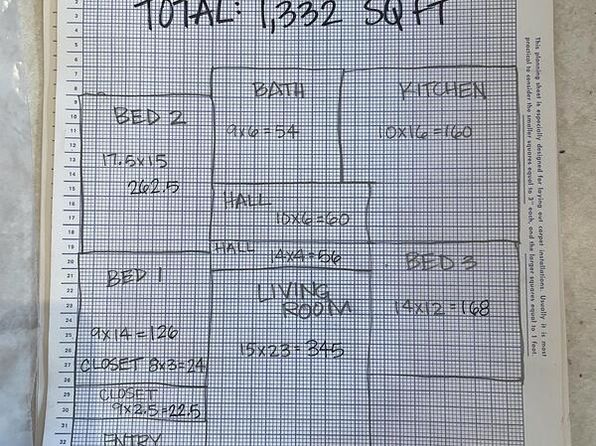 TOTAL: 1,332 SQ FT
BATH
9x6=54
KITCHEN
10x16=160
BED 2
17.5x15
262.5
HALL
10x6=60
HALL
14x4=56
BED 1
9x14=126
CLOSET 8x3=24
LIVING
ROOM
15x23=345
BED 3
14x12=168
CLOSET
9x2.5=22.5
ENTRY
This planning sheet is especially designed for laying out carpet installations. Usually it is most
practical to consider the smaller squares equal to 3" each, and the larger squares equal to 1 foot.